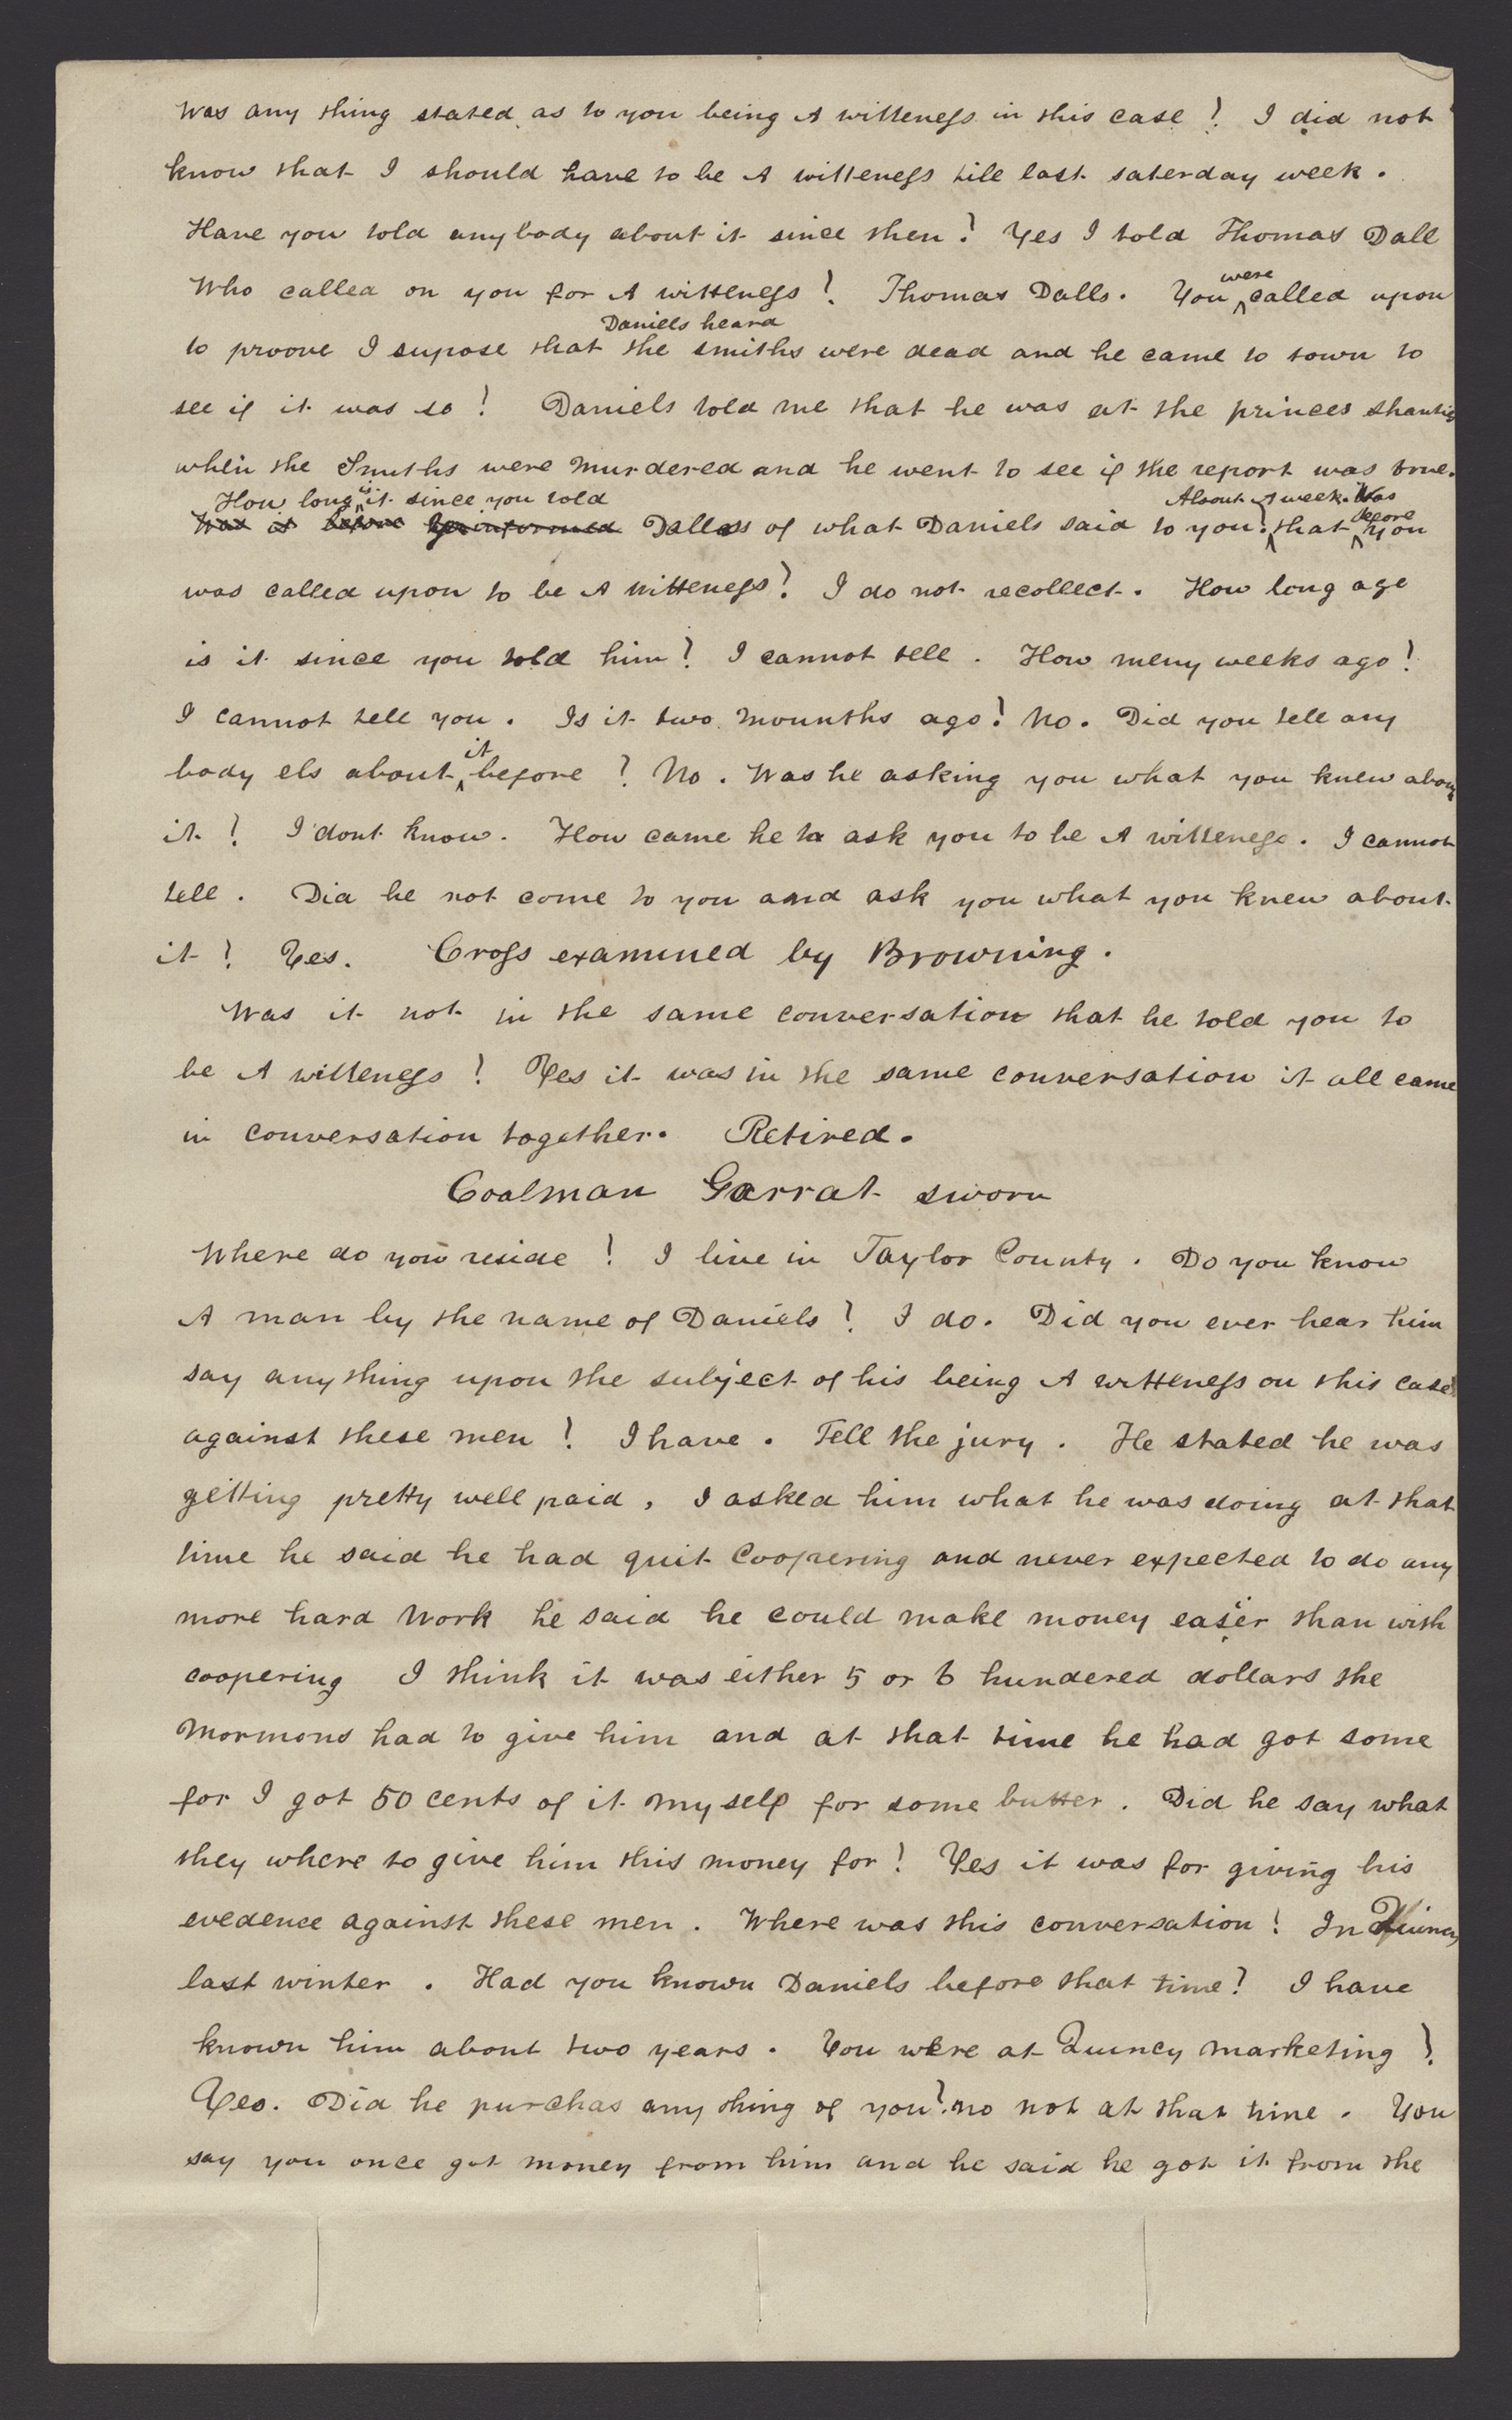 Was any thing stated as to you being A witteness in this case? I did not
know that I should have to be A witteness till last saterday week.
Have you told anybody about it since then? Yes I told Thomas Dall
Who called on you for A witteness? Thomas Dalls. You were called upon
Daniels heard
to proove I supose that the smiths were dead and he came to town to
see if it was so? Daniels told me that he was at the princes shantie
when the Smiths were murdered and he went to see if the report was true.
How long is it since you told About A week. Was
Was it before he informed Dallass of what Daniels said to you? that before you
was called upon to be A witteness? I do not recollect. How long age
is it since you told him? I cannot tell. How meny weeks ago?
I cannot tell you. Is it two mounths ago? No. Did you tell any
body els about it before? No. Was he asking you what you knew abou
it? I dont know. How came he to ask you to be A witteness. I cannot
tell. Did he not come to you and ask you what you knew about
it? Yes. Cross examined by Browning.
Was it not in the same conversation that he told you to
be A witteness? Yes it was in the same conversation it all came
in conversation together. Retired.
Coalman Garrat sworn
Where do you reside? I live in Taylor County. Do you know
A man by the name of Daniels? I do. Did you ever hear him
say any thing upon the subject of his being A witteness on this case
against these men? I have. Tell the jury. He stated he was
getting pretty well paid, I asked him what he was doing at that
time he said he had quit Coopering and never expected to do any
more hard work he said he could make money easier than with
coopering I think it was either 5 or 6 hundered dollars the
Mormons had to give him and at that time he had got some
for I got 50 cents of it my self for some butter. Did he say what
they where to give him this money for? Yes it was for giving his
evedence against these men. Where was this conversation? In Quincy
last winter. Had you known Daniels before that time? I have
known him about two years. You were at Quincy marketing?
Yes. Did he purchas any thing of you? no not at that time. You
say you once got money from him and he said he got it from the